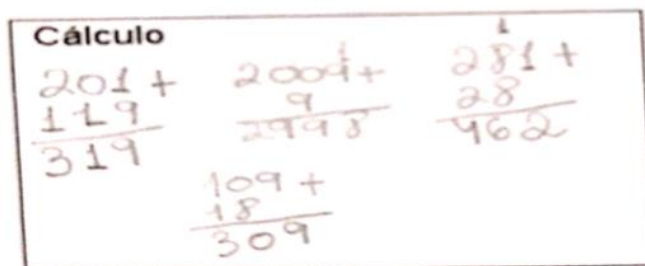 Cálculo
201+
119
319
2009+
9
2998
1
281+
28
462
109+
18
309